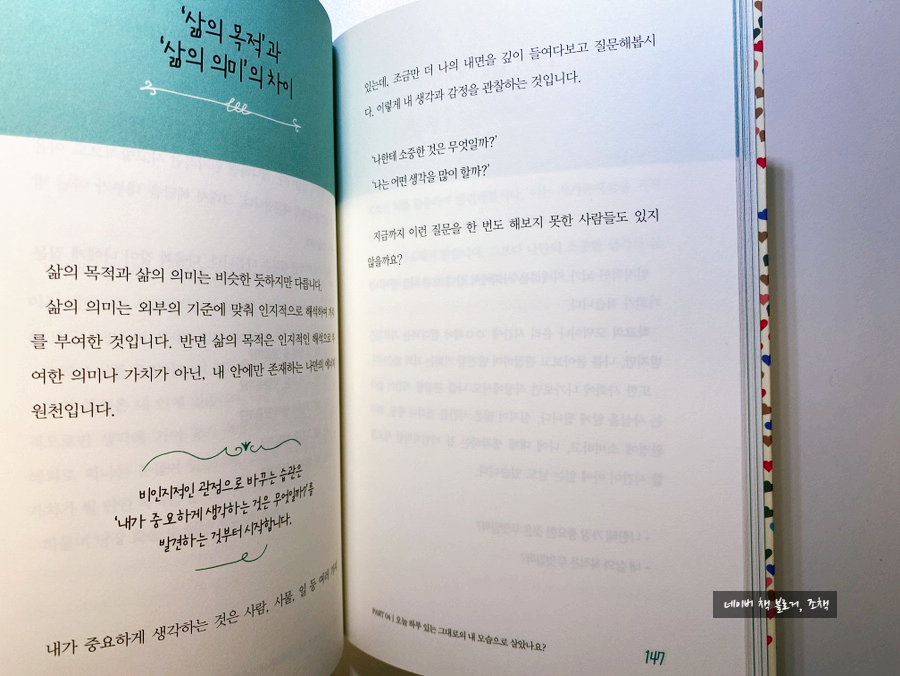 '삶의 목적'과
'삶의 의미'의 차이
삶의 목적과 삶의 의미는 비슷한 듯하지만 다릅니다.
삶의 의미는 외부의 기준에 맞춰 인지적으로
를 부여한 것입니다. 반면 삶의 목적은 인지적인 해석으로
여한 의미나 가치가 아닌, 내 안에만 존재하는 나만의
원천입니다.
비인지적인 관점으로 바꾸는 습관은
'내가 중요하게 생각하는 것은 무엇일까?'를
발견하는 것부터 시작합니다.
내가 중요하게 생각하는 것은 사람, 사물, 일 등 여러
있는데, 조금만 더 나의 내면을 깊이 들여다보고 질문해봅시
다. 이렇게 내 생각과 감정을 관찰하는 것입니다.
'나한테 소중한 것은 무엇일까?'
'나는 어떤 생각을 많이 할까?'
지금까지 이런 질문을 한 번도 해보지 못한 사람들도 있지
않을까요?
PART 04 | 오늘 하루 있는 그대로의 내 모습으로 살았나요?
147
네이버 책 블로거, 조책